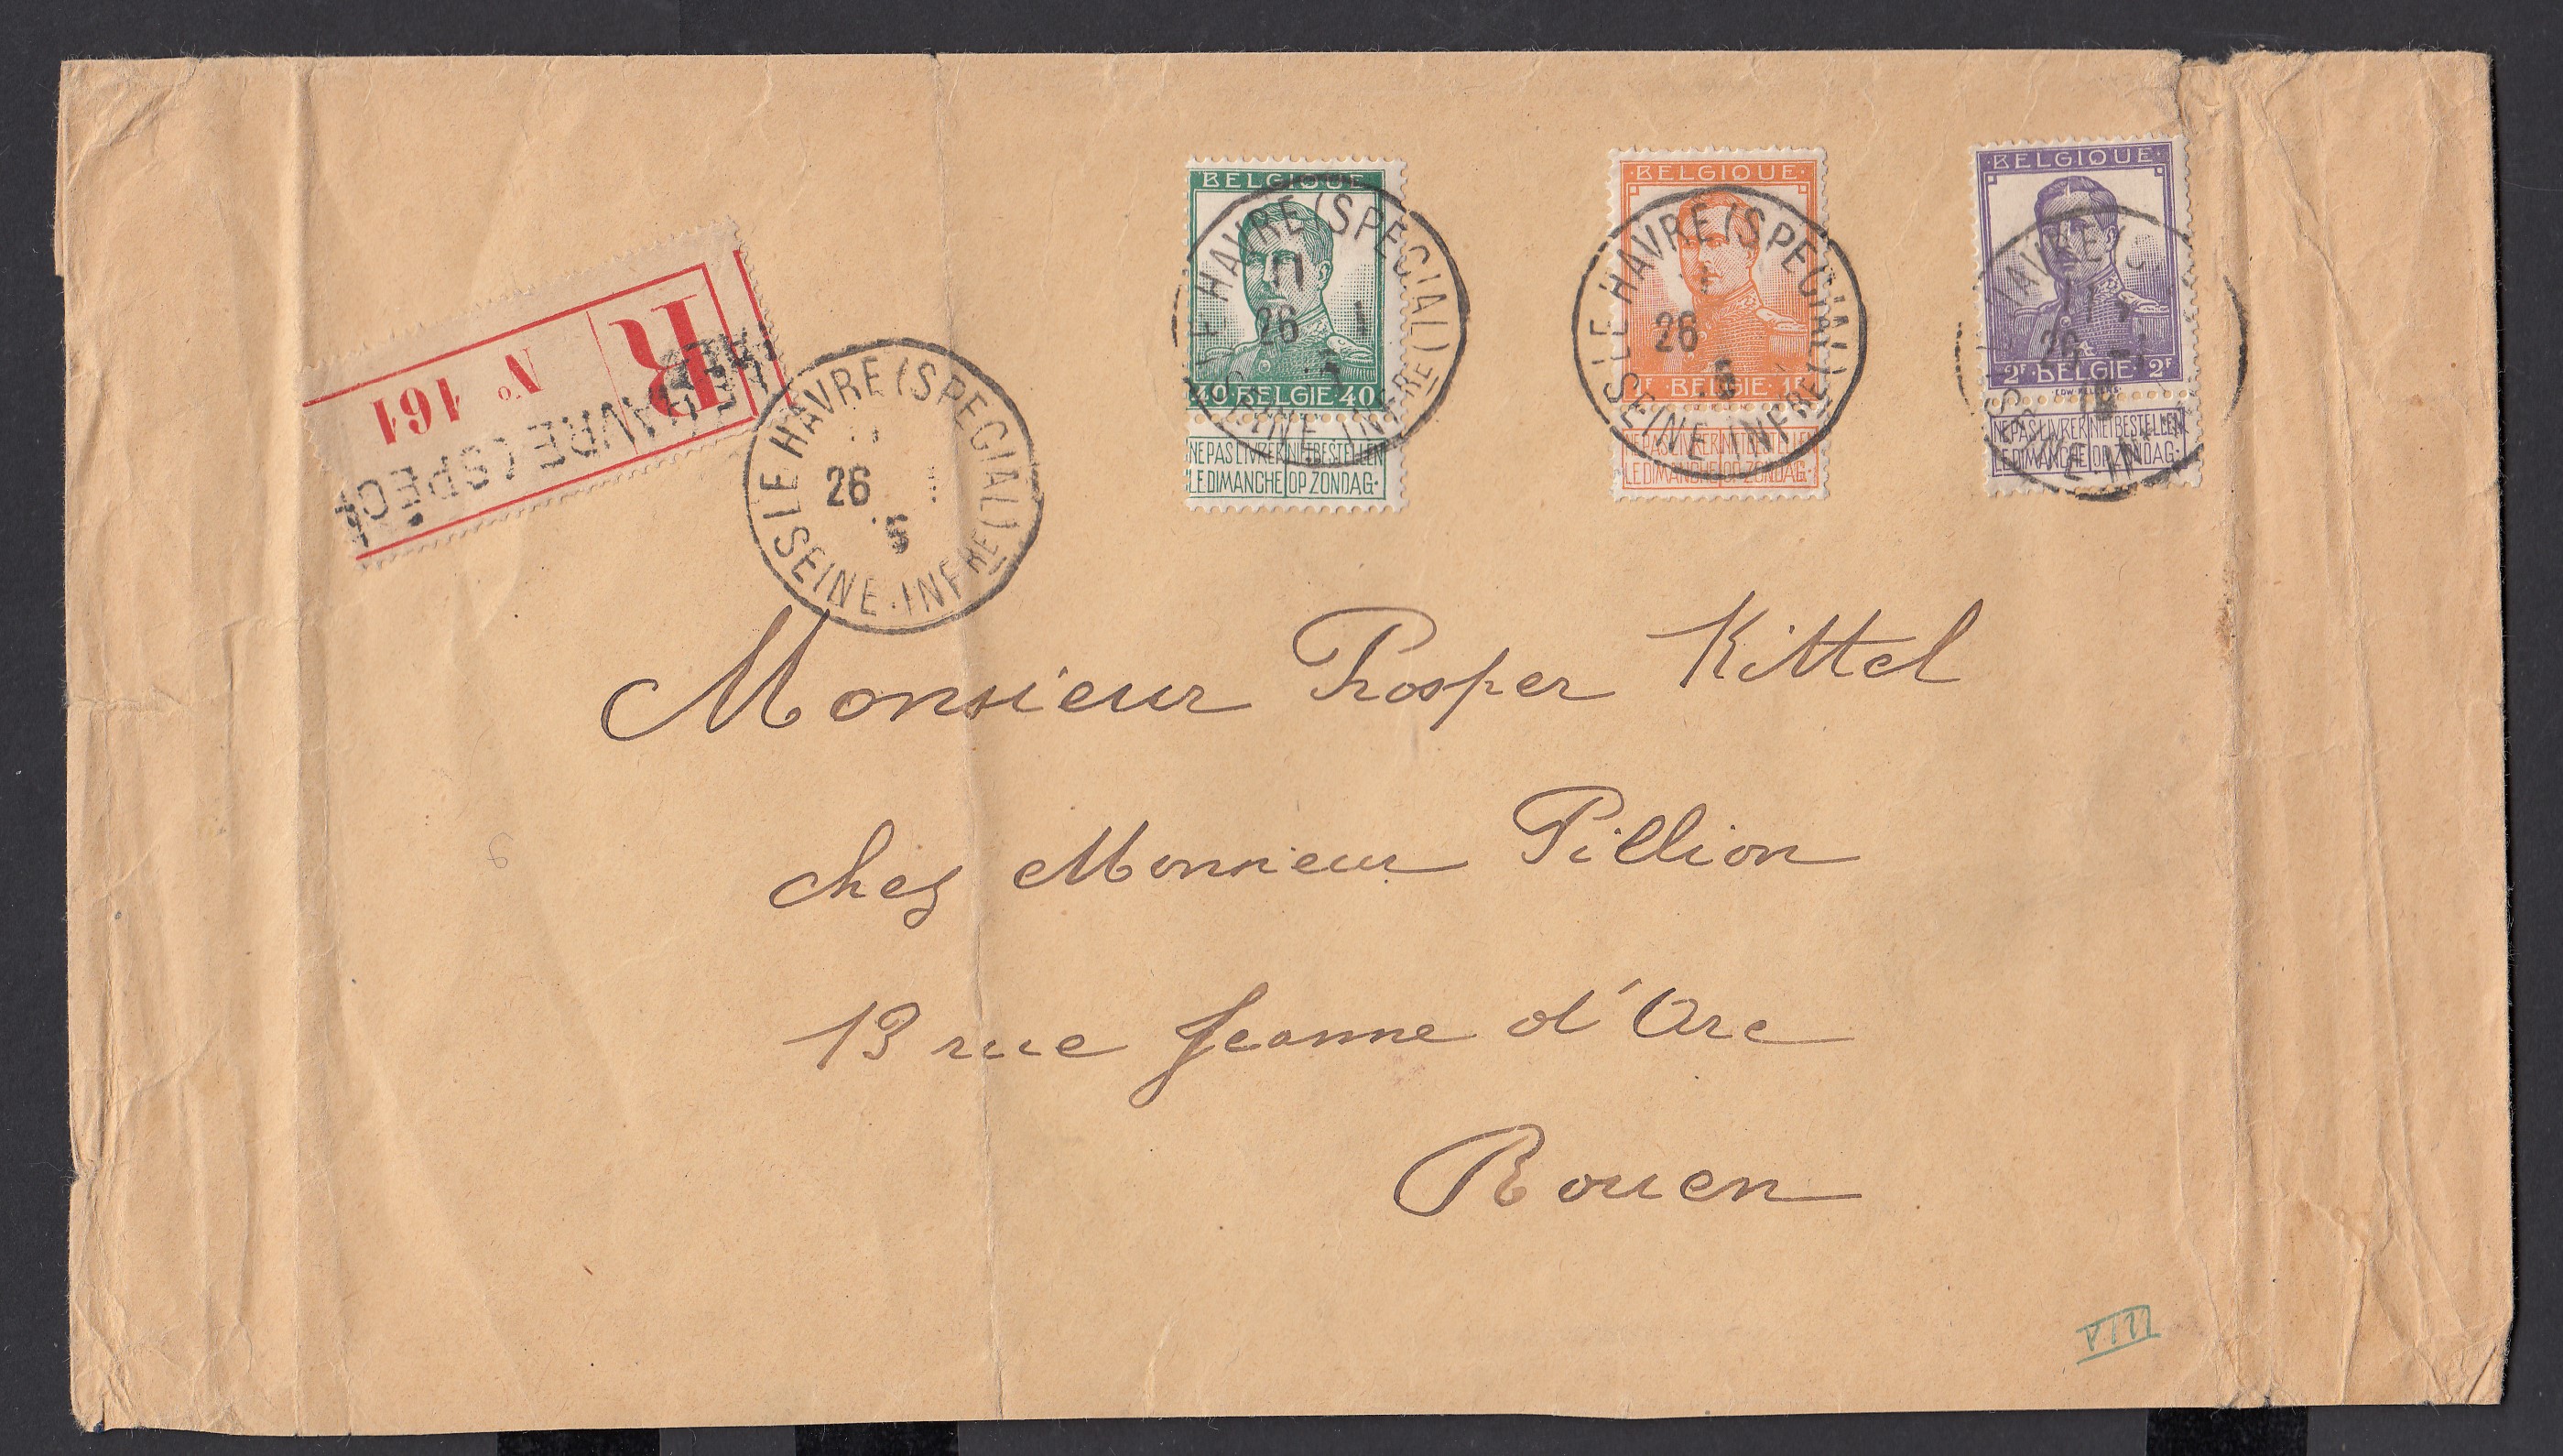 R
Nº 461
LE HAVRE (SPECI
LE HAVRE (SPECIAL)
26 1
5
SEINE-INFRE
BELGIQUE
40 BELGIE 40
NE PAS LIVRER NIET BESTELLEN
LE DIMANCHE OP ZONDAG
LE HAVRE (SPECIAL)
26 1
SEINE-INFRE
·BELGIQUE·
1F BELGIE·1F
NE PAS LIVRER NIET BESTELLEN
LE DIMANCHE OP ZONDAG·
LE HAVRE (SPECIAL)
26
SEINE-INFRE
·BELGIQUE·
2F·BELGIE·2F
NE PAS LIVRER NIET BESTELLEN
LE DIMANCHE OP ZONDAG·
26
Monsieur Prosper Kittel
chez Monsieur Pillion
13 rue Jeanne d'Arc
Rouen
VIII